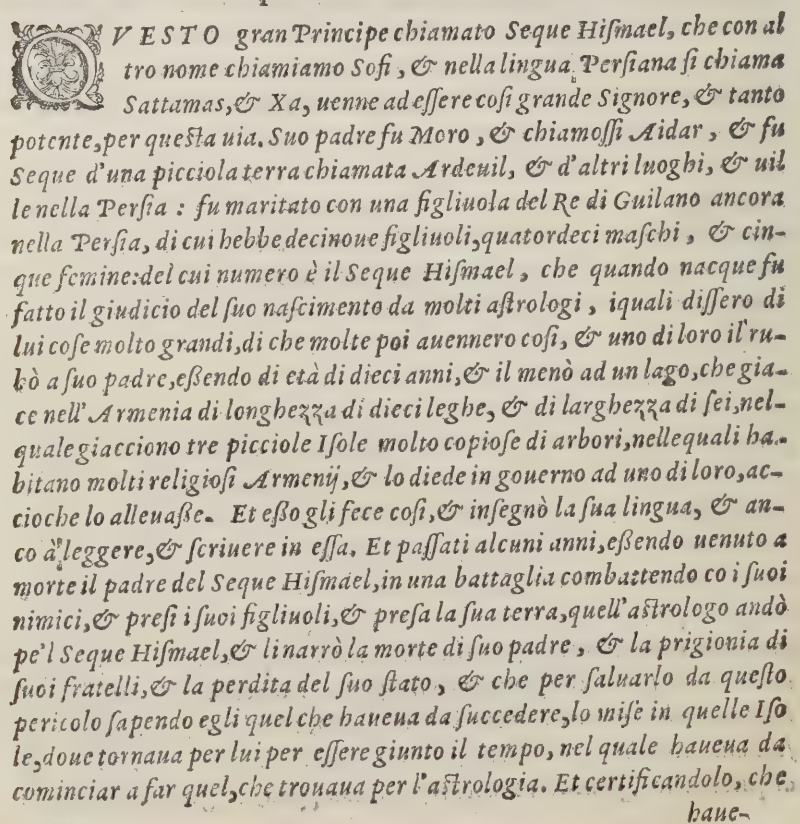 QVESTO gran Principe chiamato Seque Hiſmael, che con al
tro nome chiamiamo Sofi, & nella lingua Perſiana ſi chiama
Sattamas, & Xa, uenne ad eſſere coſi grande Signore, & tanto
potente, per queſta uia. Suo padre fu Moro, & chiamoſſi Aidar, & fu
Seque d'una picciola terra chiamata Ardeuil, & d'altri luoghi, & uil
le nella Perſia : fu maritato con una figliuola del Re di Guilano ancora
nella Perſia, di cui hebbe decinoue figliuoli, quatordeci maſchi, & cin-
que femine: del cui numero è il Seque Hiſmael, che quando nacque fu
fatto il giudicio del ſuo naſcimento da molti aſtrologi, iquali diſſero di
lui coſe molto grandi, di che molte poi auennero coſi, & uno di loro il ru-
bò a ſuo padre, eßendo di età di dieci anni, & il menò ad un lago, che gia-
ce nell'Armenia di longhezza di dieci leghe, & di larghezza di ſei, nel-
quale giacciono tre picciole Iſole molto copioſe di arbori, nellequali ha-
bitano molti religioſi Armenij, & lo diede in gouerno ad uno di loro, ac-
cioche lo alleuaße. Et eßo gli fece coſi, & inſegnò la ſua lingua, & an-
co à leggere, & ſcriuere in eſſa. Et paſſati alcuni anni, eßendo uenuto a
morte il padre del Seque Hiſmael, in una battaglia combattendo co i ſuoi
nimici, & preſi i ſuoi figliuoli, & preſa la ſua terra, quell'aſtrologo andò
pe'l Seque Hiſmael, & li narrò la morte di ſuo padre, & la prigionia di
ſuoi fratelli, & la perdita del ſuo ſtato, & che per ſaluarlo da queſto
pericolo ſapendo egli quel che haueua da ſuccedere, lo miſe in quelle Iſo
le, doue tornaua per lui per eſſere giunto il tempo, nel quale haueua da
cominciar a far quel, che trouaua per l'aſtrologia. Et certificandolo, che
haue-